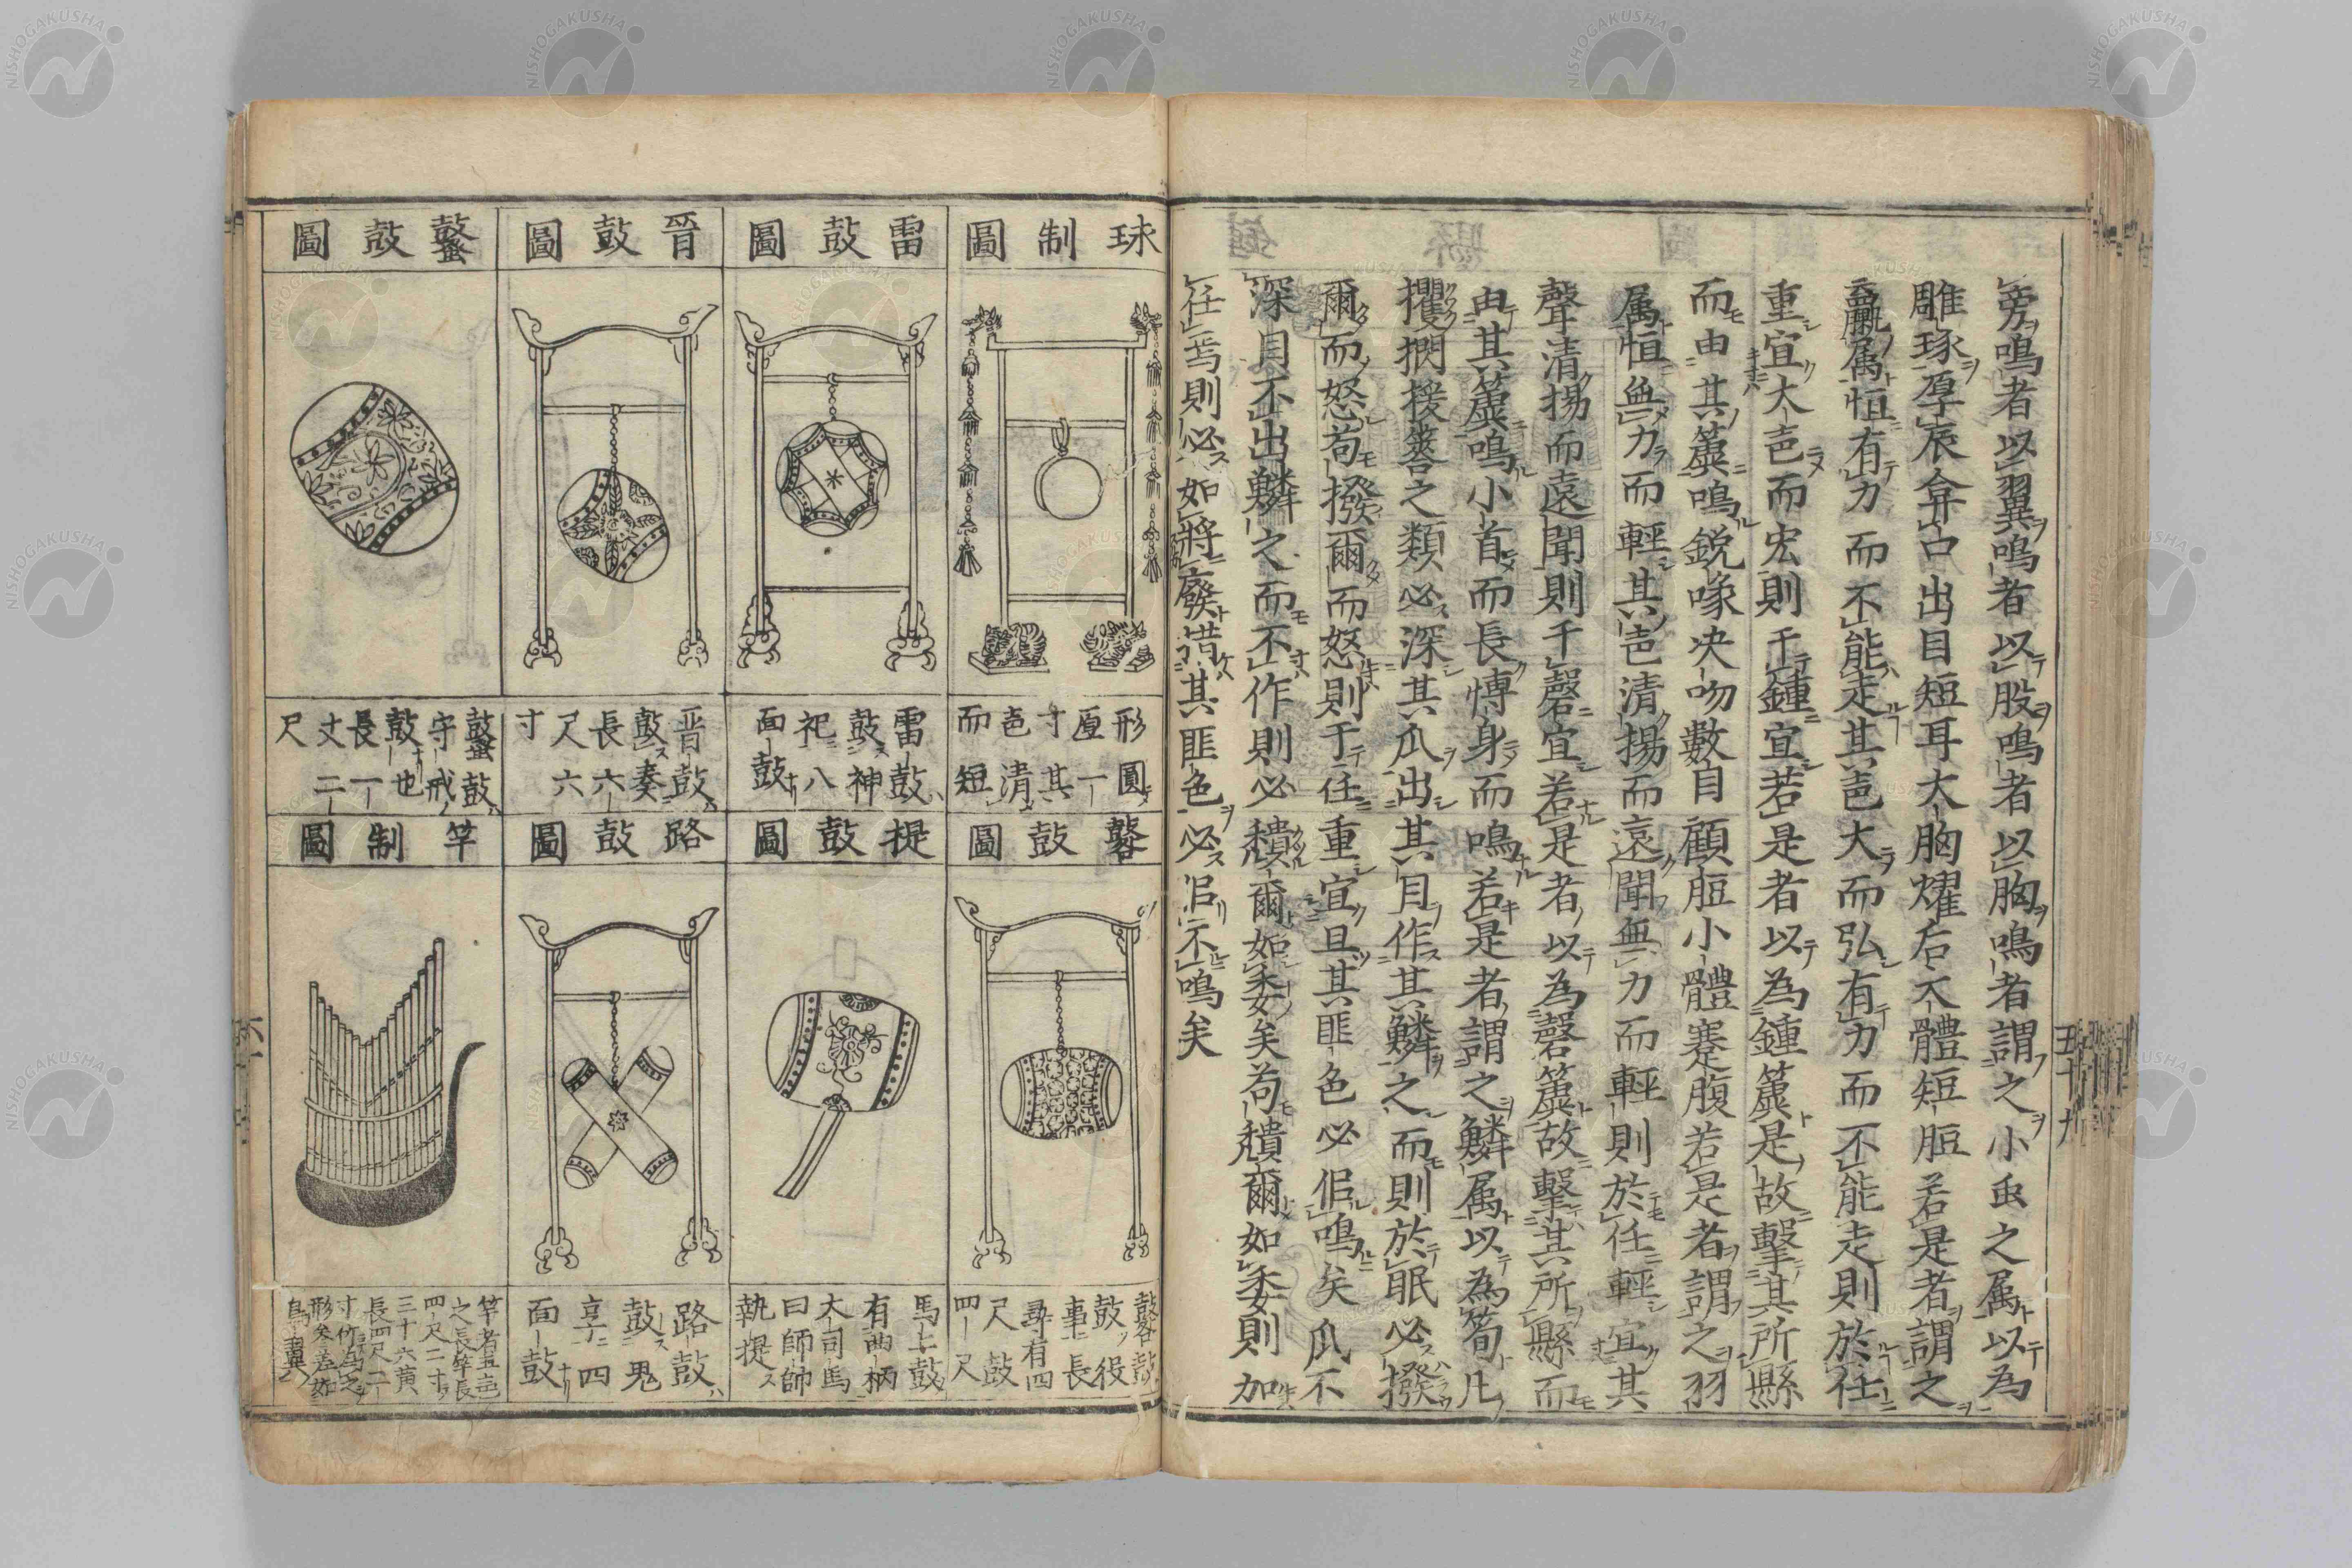 旁鳴者以翼鳴者以股鳴者以胸鳴者謂之小虫之属以為
雕琢厚辰弇口出目短耳大胸燿后大體短脰若是者謂之
臝属恒有力而不能走其声大而弘有力而不能走則於任
重宜大声而宏則于鍾宜若是者以為鍾簴是故擊其所縣
而由其簴鳴鋭喙决吻數目顧脰小體騫腹若是者謂之羽
属恒無力而輕其声清揚而遠聞無力而輕則於任輕宜其
聲清揚而遠聞則于磬宜若是者以為磬簴故擊其所縣而
由其簴鳴小首而長慱身而鳴若是者謂之鱗属以為筍凡
攫閷援簭之類必深其爪出其目作其鱗之而則於眡必撥
爾而怒苟撥爾而怒則于任重宜且其匪色必侣鳴矣爪不
深目不出鱗之而不作則必穨爾如委矣苟穨爾如委則加
任焉則必如將廢措其匪色必侣不鳴矣
五十九
球制圖
形圓
厚一
寸其
声清
而短
雷鼓圖
雷鼓
鼓神
祀八
面鼓
晉鼓圖
晋鼓
鼓奏
長六
尺六
寸
鼜鼓圖
鼜鼓
守戒
鼓也
長一
丈二
尺
鼛鼓圖
鼛鼓
鼓役
事長
尋有四
尺鼓
四尺
提鼓圖
馬上鼓
有曲柄
大司馬
曰師帥
執提
路鼓圖
路鼓
鼓鬼
享四
面鼓
竽制圖
竽者五声
之長竽長
四尺二寸
三十六簧
長四尺二
寸竹為之
形参差如
鳥翼